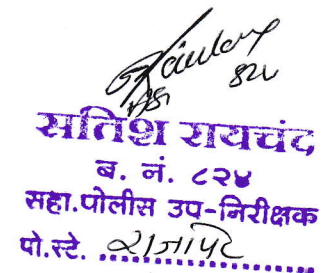 824
ASI
सतिश रायचंद
ब. नं. ८२४
सहा.पोलीस उप-निरीक्षक
पो.स्टे. राजापेठ